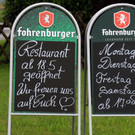 Fohrenburger
Restaurant
ab 18.5.
geöffnet
Wir freuen uns
auf Euch!
Fohrenburger
Montag
Dienstag
Freitag
Samstag